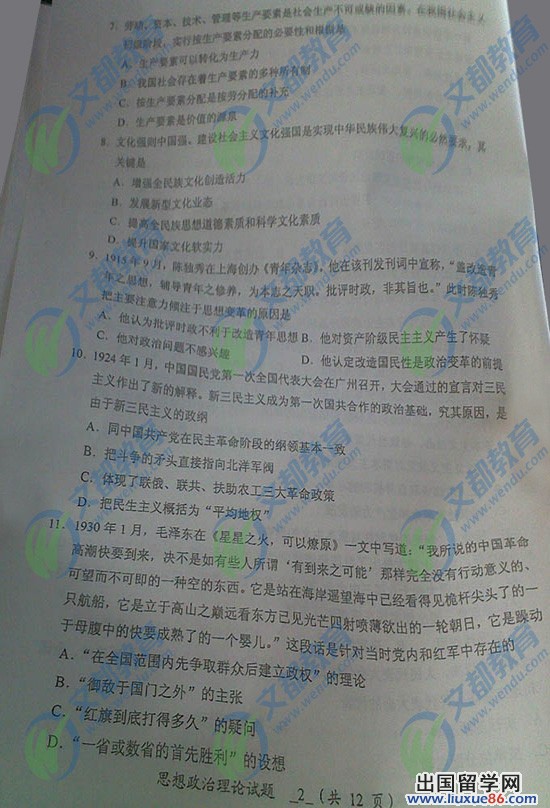 7. 劳动、资本、技术、管理等生产要素是社会生产不可或缺的因素，在我国社会主义
初级阶段，实行按生产要素分配的必要性和根据是
A. 生产要素可以转化为生产力
B. 我国社会存在着生产要素的多种所有制
C. 按生产要素分配是按劳分配的补充
D. 生产要素是价值的源泉
8. 文化强则中国强。建设社会主义文化强国是实现中华民族伟大复兴的必然要求，其
关键是
A. 增强全民族文化创造活力
B. 发展新型文化业态
C. 提高全民族思想道德素质和科学文化素质
D. 提升国家文化软实力
9. 1915 年 9 月，陈独秀在上海创办《青年杂志》，他在该刊发刊词中宣称，“盖改造青
年之思想，辅导青年之修养，为本志之天职。批评时政，非其旨也。”此时陈独秀
把主要注意力倾注于思想变革的原因是
A. 他认为批评时政不利于改造青年思想 B. 他对资产阶级民主主义产生了怀疑
C. 他对政治问题不感兴趣 D. 他认定改造国民性是政治变革的前提
10. 1924 年 1 月，中国国民党第一次全国代表大会在广州召开，大会通过的宣言对三民
主义作出了新的解释。新三民主义成为第一次国共合作的政治基础，究其原因，是
由于新三民主义的政纲
A. 同中国共产党在民主革命阶段的纲领基本一致
B. 把斗争的矛头直接指向北洋军阀
C. 体现了联俄、联共、扶助农工三大革命政策
D. 把民生主义概括为“平均地权”
11. 1930 年 1 月，毛泽东在《星星之火，可以燎原》一文中写道：“我所说的中国革命
高潮快要到来，决不是如有些人所谓‘有到来之可能’那样完全没有行动意义的、
可望而不可即的一种空的东西。它是站在海岸遥望海中已经看得见桅杆尖头了的一
只航船，它是立于高山之巅远看东方已见光芒四射喷薄欲出的一轮朝日，它是躁动
于母腹中的快要成熟了的一个婴儿。”这段话是针对当时党内和红军中存在的
A. “在全国范围内先争取群众后建立政权”的理论
B. “御敌于国门之外”的主张
C. “红旗到底打得多久”的疑问
D. “一省或数省的首先胜利”的设想
思想政治理论试题 _2_ (共 12 页)
文都教育
www.wendu.com
出国留学网
www.liuxue86.com